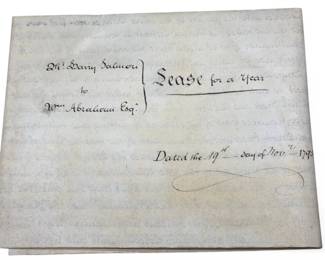 Mr. Barry Salmon
to
Wm. Abraham Esqr.
Lease for a Year
Dated the 19th day of Novr. 179